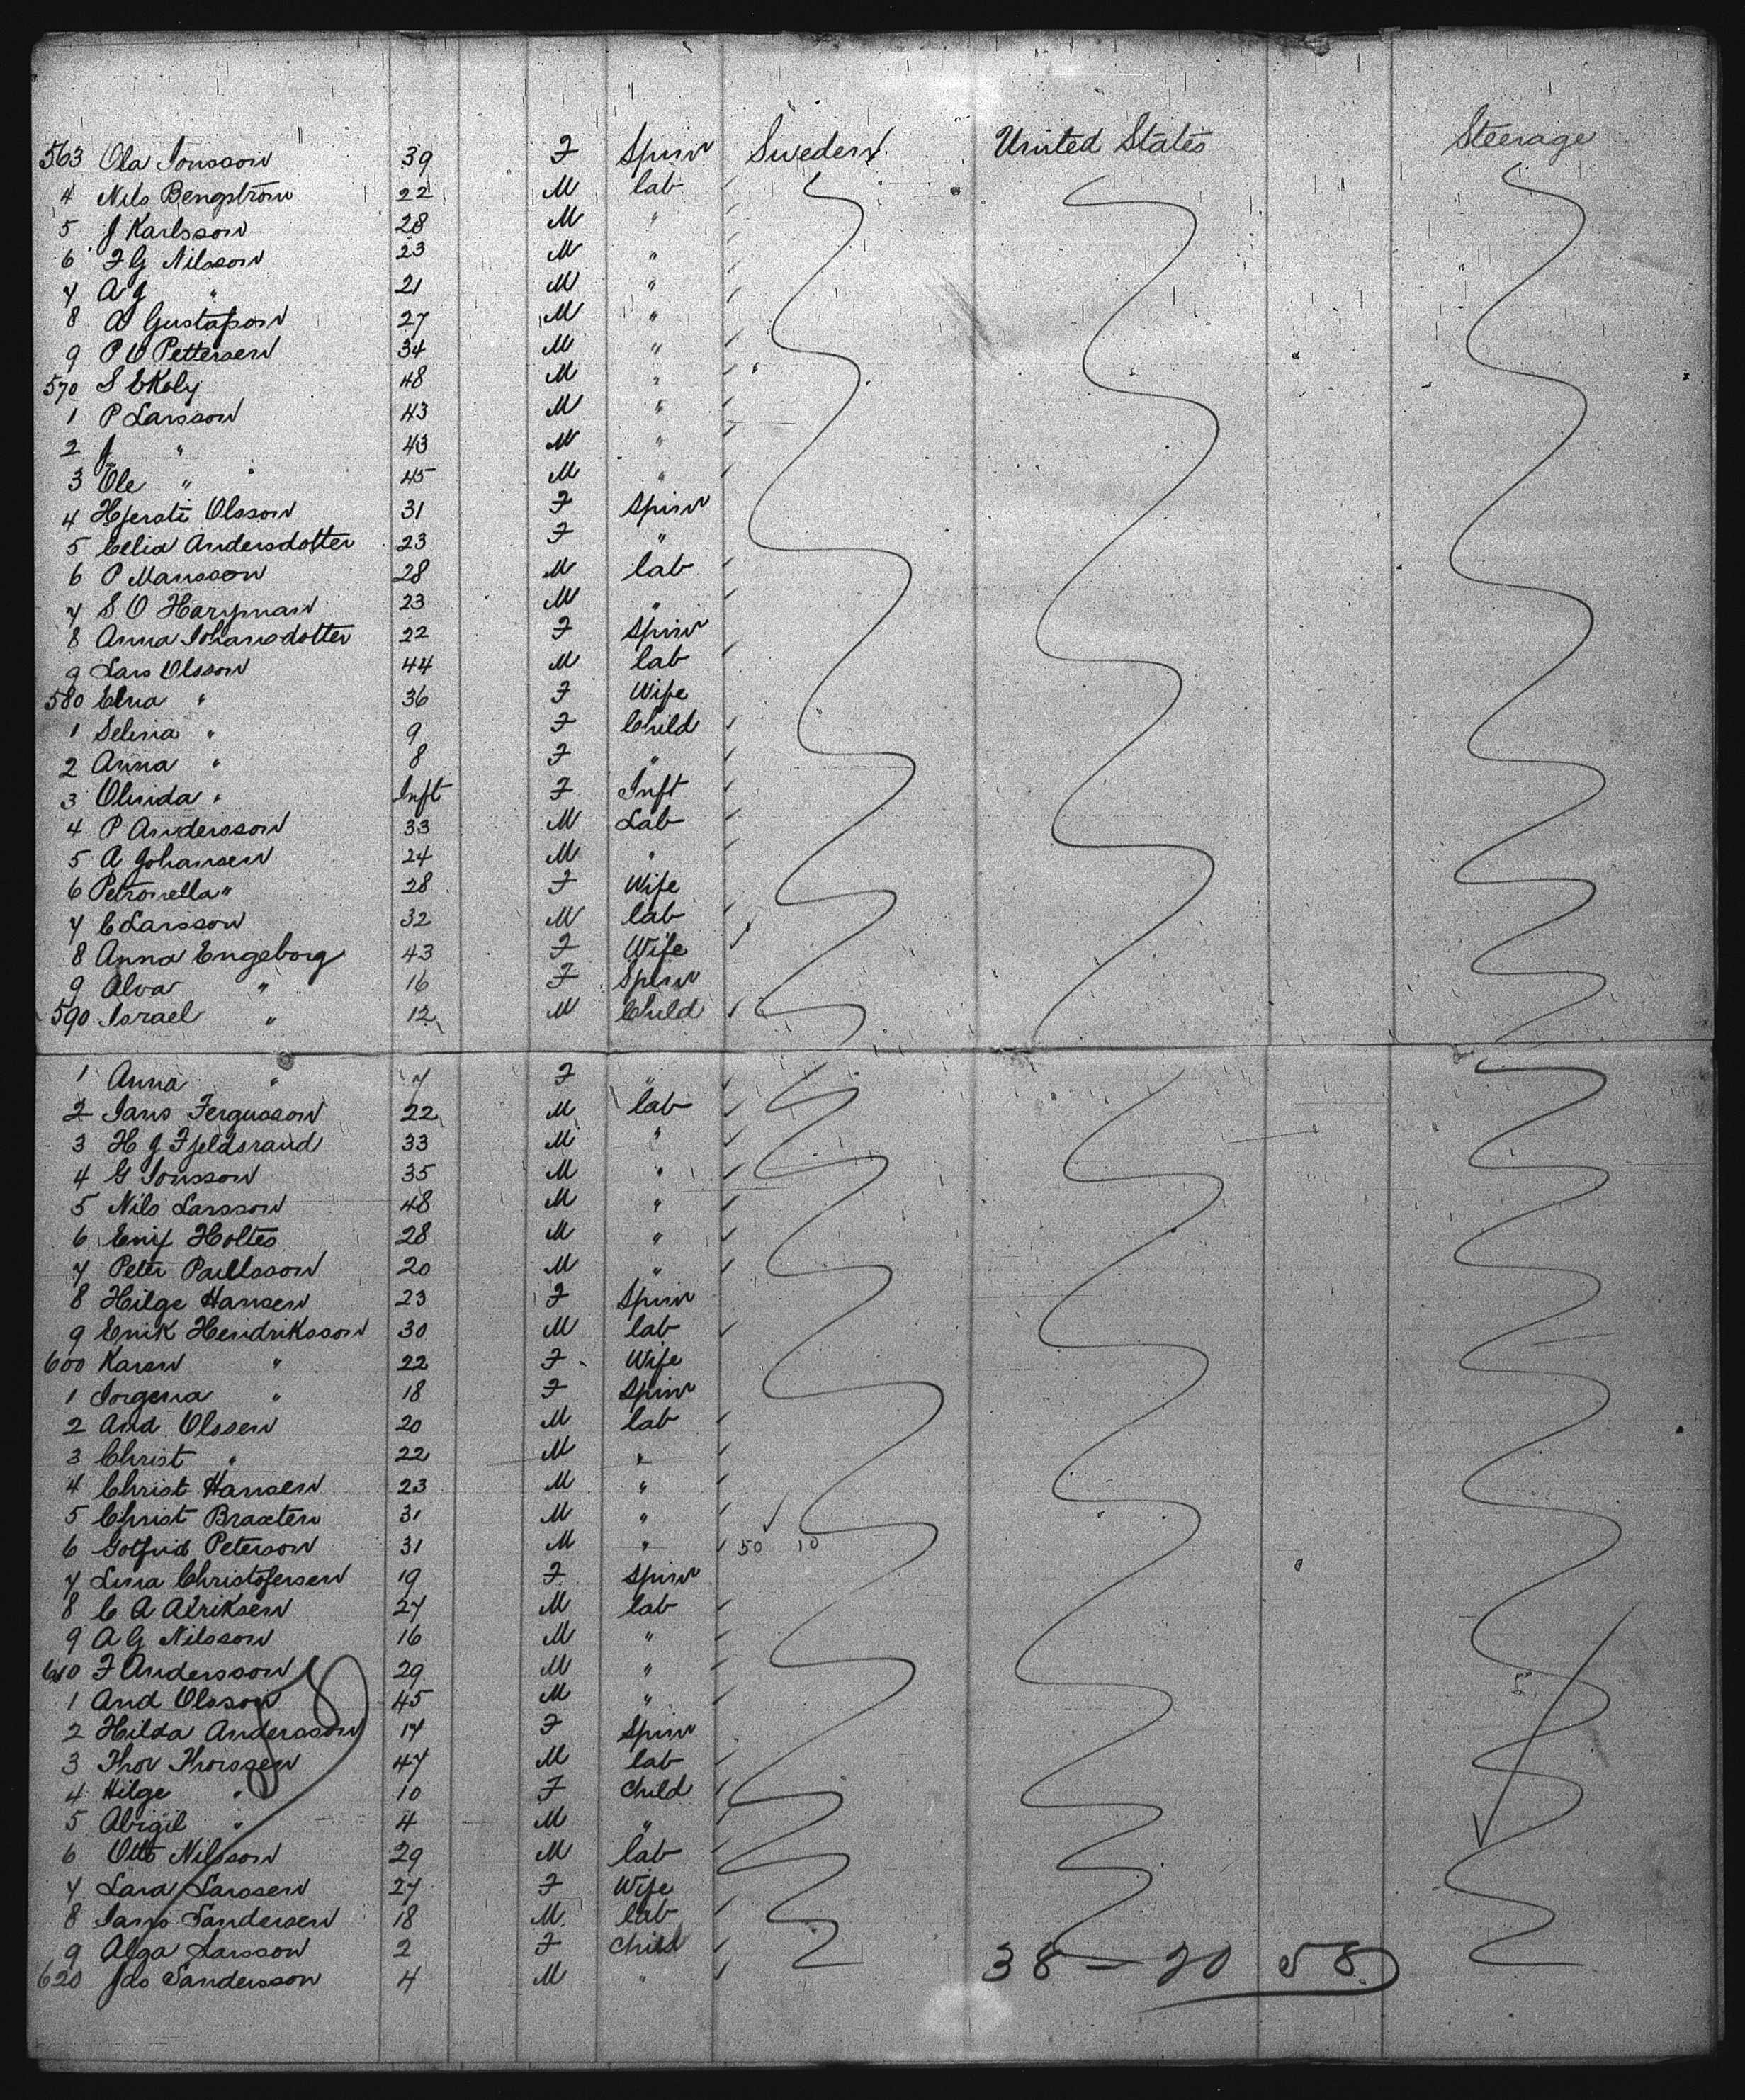 563 Ola Jonsson 39 F Spinr Sweden United States Steerage
4 Nils Bengström 22 M lab
5 J Karlsson 28 M "
6 F G Nilsson 23 M "
7 A G " 21 M "
8 A Gustafson 27 M "
9 P O Pettersen 34 M "
570 S Ekoly 48 M "
1 P Larsson 43 M "
2 J " 43 M "
3 Ole " 45 M "
4 Hjersti Olsson 31 F Spinr
5 Celia Andersdotter 23 F "
6 P Mansson 28 M lab
7 S O Haryman 23 M "
8 Anna Johansdotter 22 F Spinr
9 Lars Olsson 44 M lab
580 Elna " 36 F Wife
1 Selma " 9 F Child
2 Anna " 8 F "
3 Olinda " Inft F Inft
4 P Andersson 33 M Lab
5 A Johansen 24 M "
6 Petronella " 28 F Wife
7 C Larsson 32 M lab
8 Anna Engeborg 43 F Wife
9 Alva " 16 F Spinr
590 Israel " 12 M Child
1 Anna " 7 F "
2 Jans Fergusson 22 M lab
3 H J Fjeldsrand 33 M "
4 G Jonsson 35 M "
5 Nils Larsson 48 M "
6 Holtes 28 M "
7 Peter Paulsson 20 M "
8 Hilge Hansen 23 F Spinr
9 Erik Hendriksson 30 M lab
600 Karen " 22 F Wife
1 Jorgena " 18 F Spinr
2 And Olssen 20 M lab
3 Christ " 22 M "
4 Christ Hansen 23 M "
5 Christ Braxten 31 M "
6 Gotfrid Peterson 31 M " 50 10
7 Lina Christofersen 19 F Spinr
8 C A Alriksen 27 M lab
9 A G Nilsson 16 M "
610 F Andersson 29 M "
1 And Olsson 45 M "
2 Hilda Andersson 17 F Spinr
3 Thor Thorssen 47 M lab
4 Hilge " 10 F Child
5 Abigil " 4 M "
6 Otto Nilsson 29 M lab
7 Lara Larssen 27 F Wife
8 Jans Sandersen 18 M lab
9 Alga Larsson 2 F Child
620 Jas Sandersson 4 M " 38 — 20 58